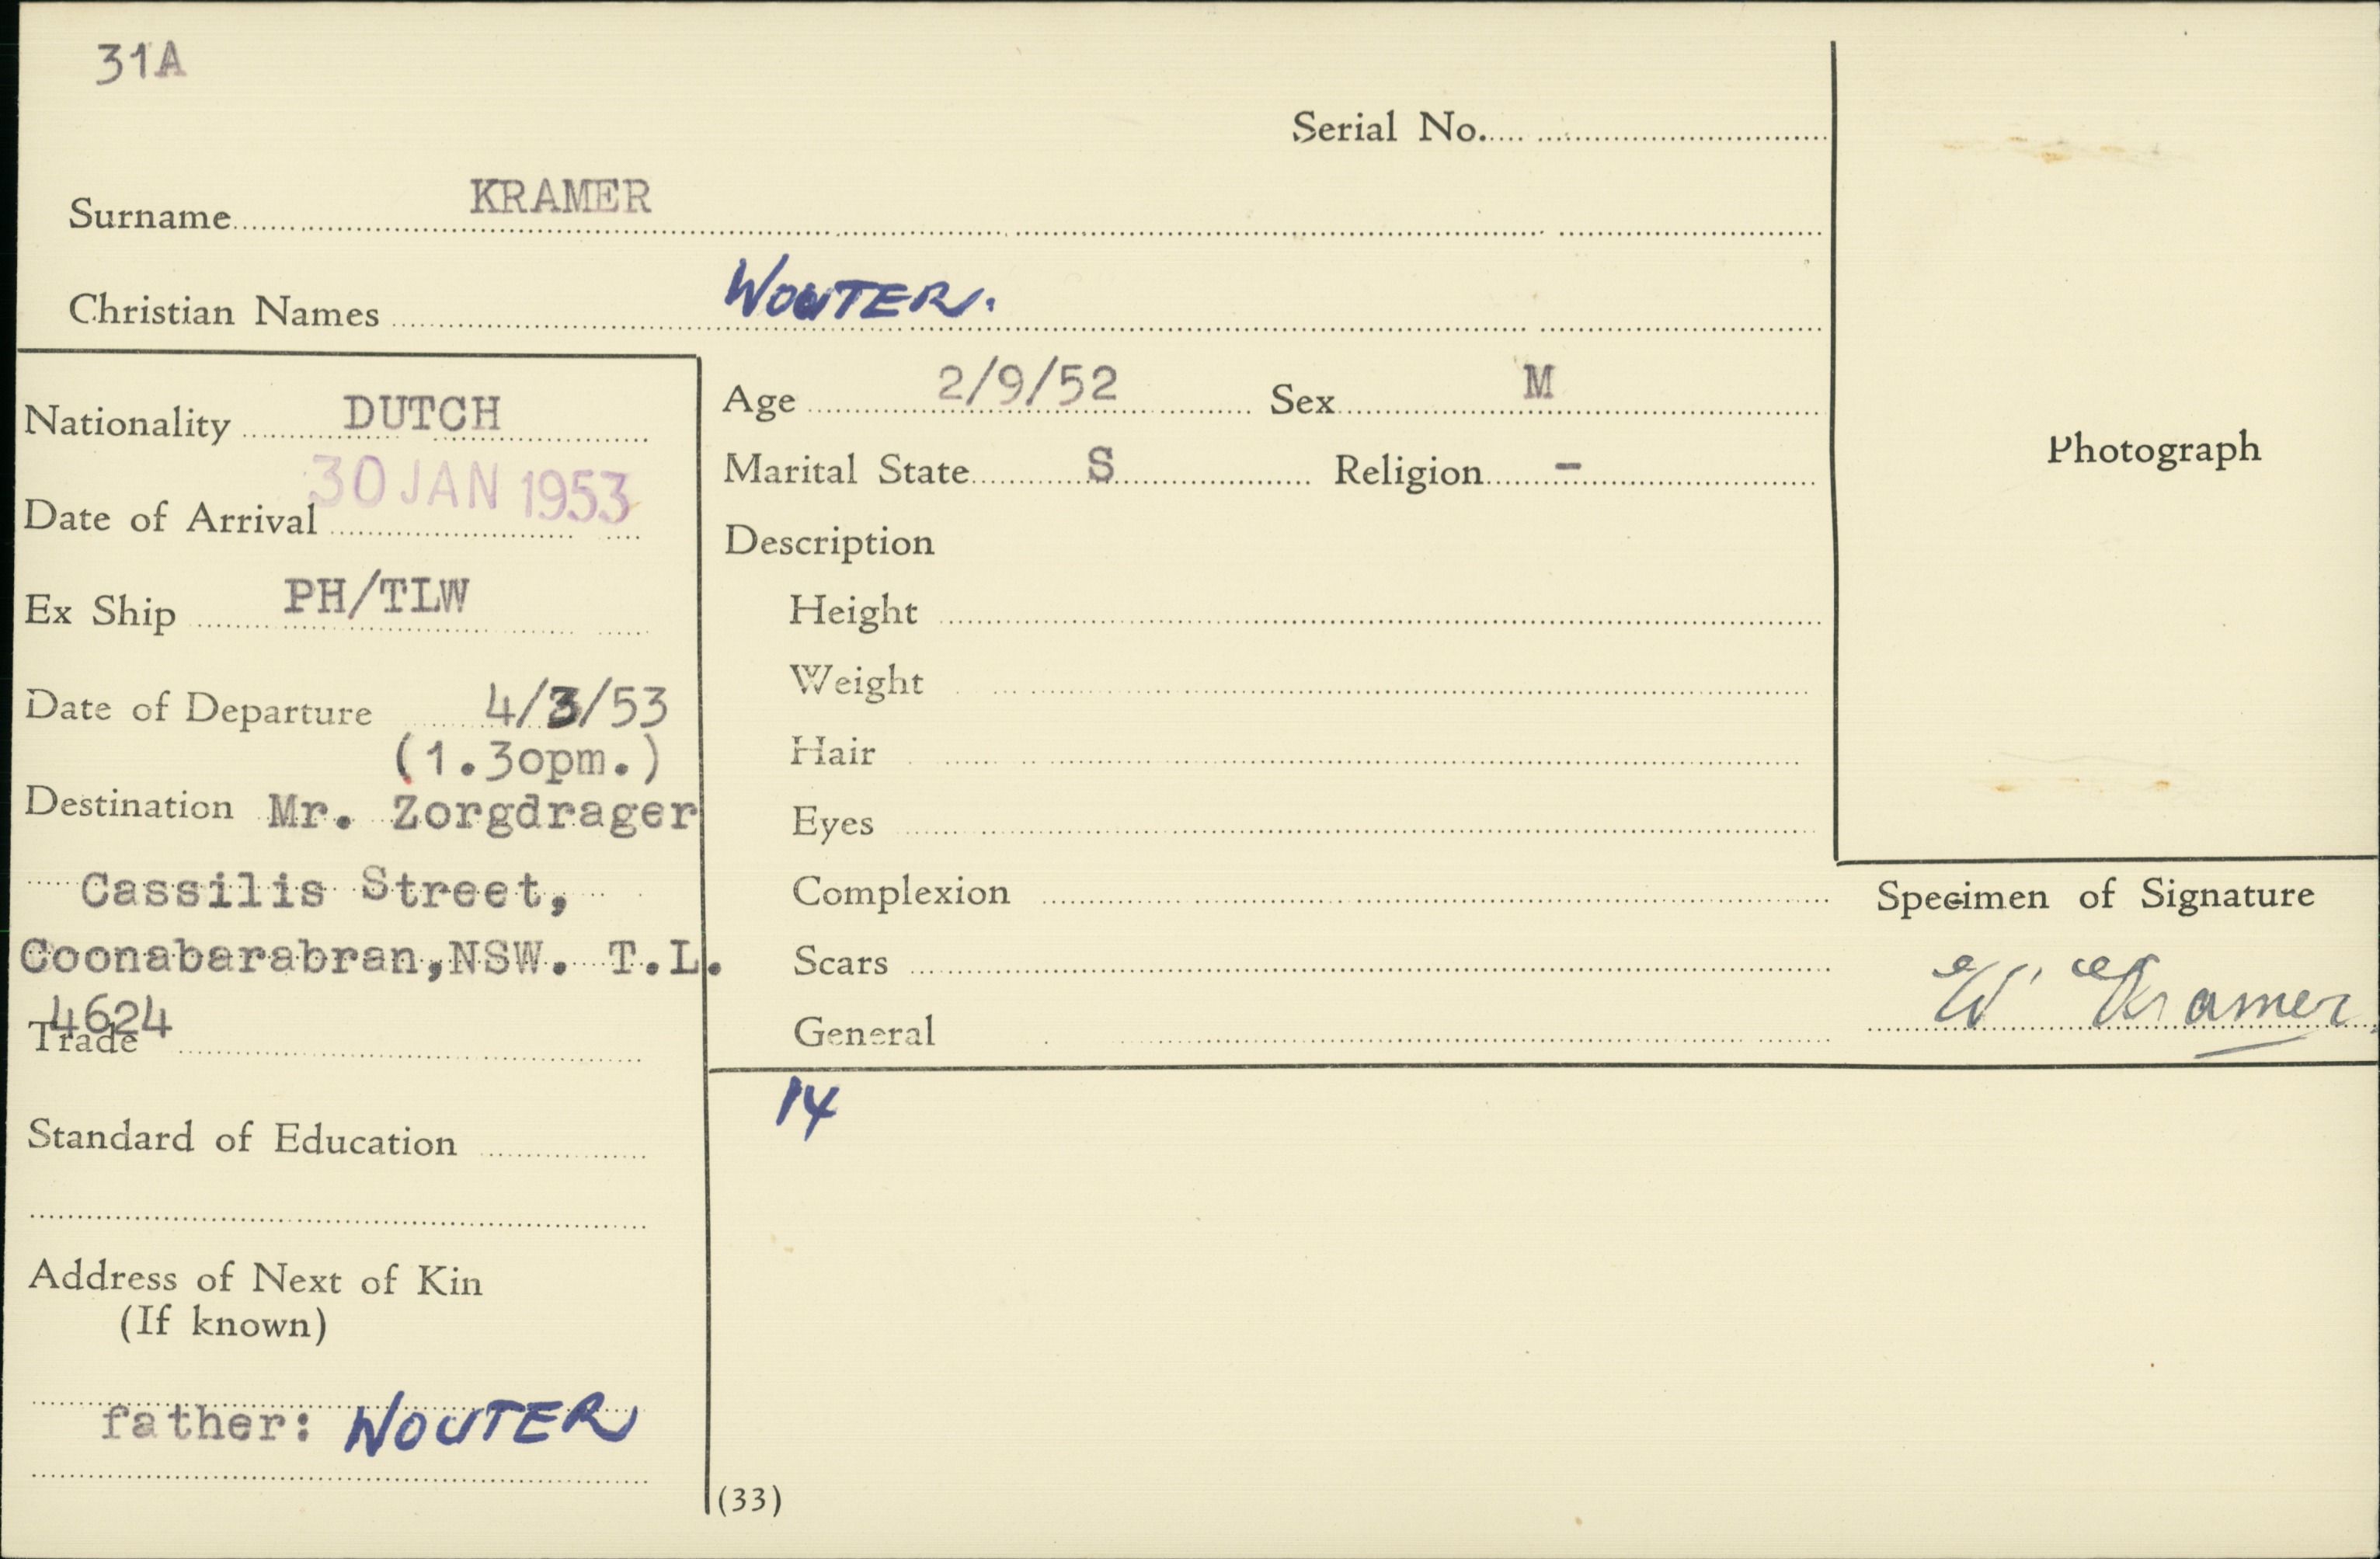 31A
Serial No.
Surname KRAMER
Christian Names WOUTER.
Nationality DUTCH
Date of Arrival 30 JAN 1953
Ex Ship PH/TLW
Date of Departure 4/3/53
(1.30pm.)
Destination Mr. Zorgdrager
Cassilis Street,
Coonabarabran,NSW. T.L.
4624
Trade
Standard of Education
Address of Next of Kin
(If known)
father: WOUTER
Age 2/9/52 Sex M
Marital State S Religion -
Description
Height
Weight
Hair
Eyes
Complexion
Scars
General
14
(33)
Photograph
Specimen of Signature
W Kramer